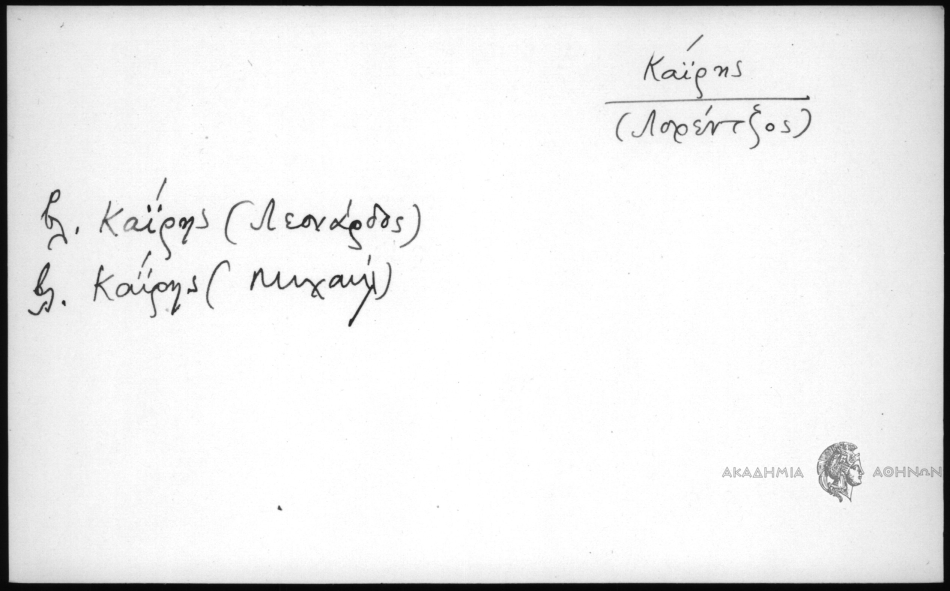 Καΐρης
(Λορέντζος)
βλ. Καΐρης (Λεονάρδος)
βλ. Καΐρης (Μιχαήλ)
ΑΚΑΔΗΜΙΑ ΑΘΗΝΩΝ